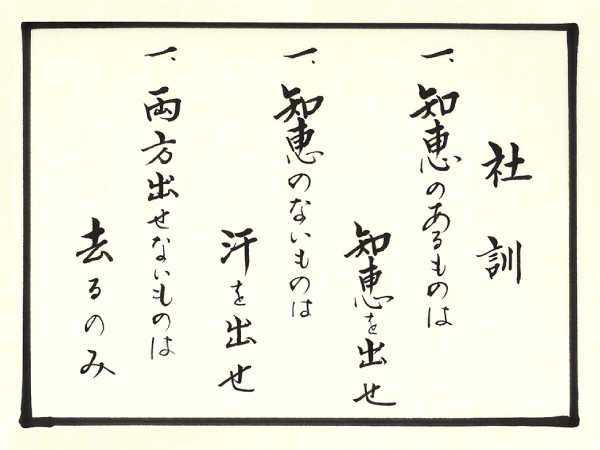 社訓
一、知恵のあるものは
知恵を出せ
一、知恵のないものは
汗を出せ
一、両方出せないものは
去るのみ